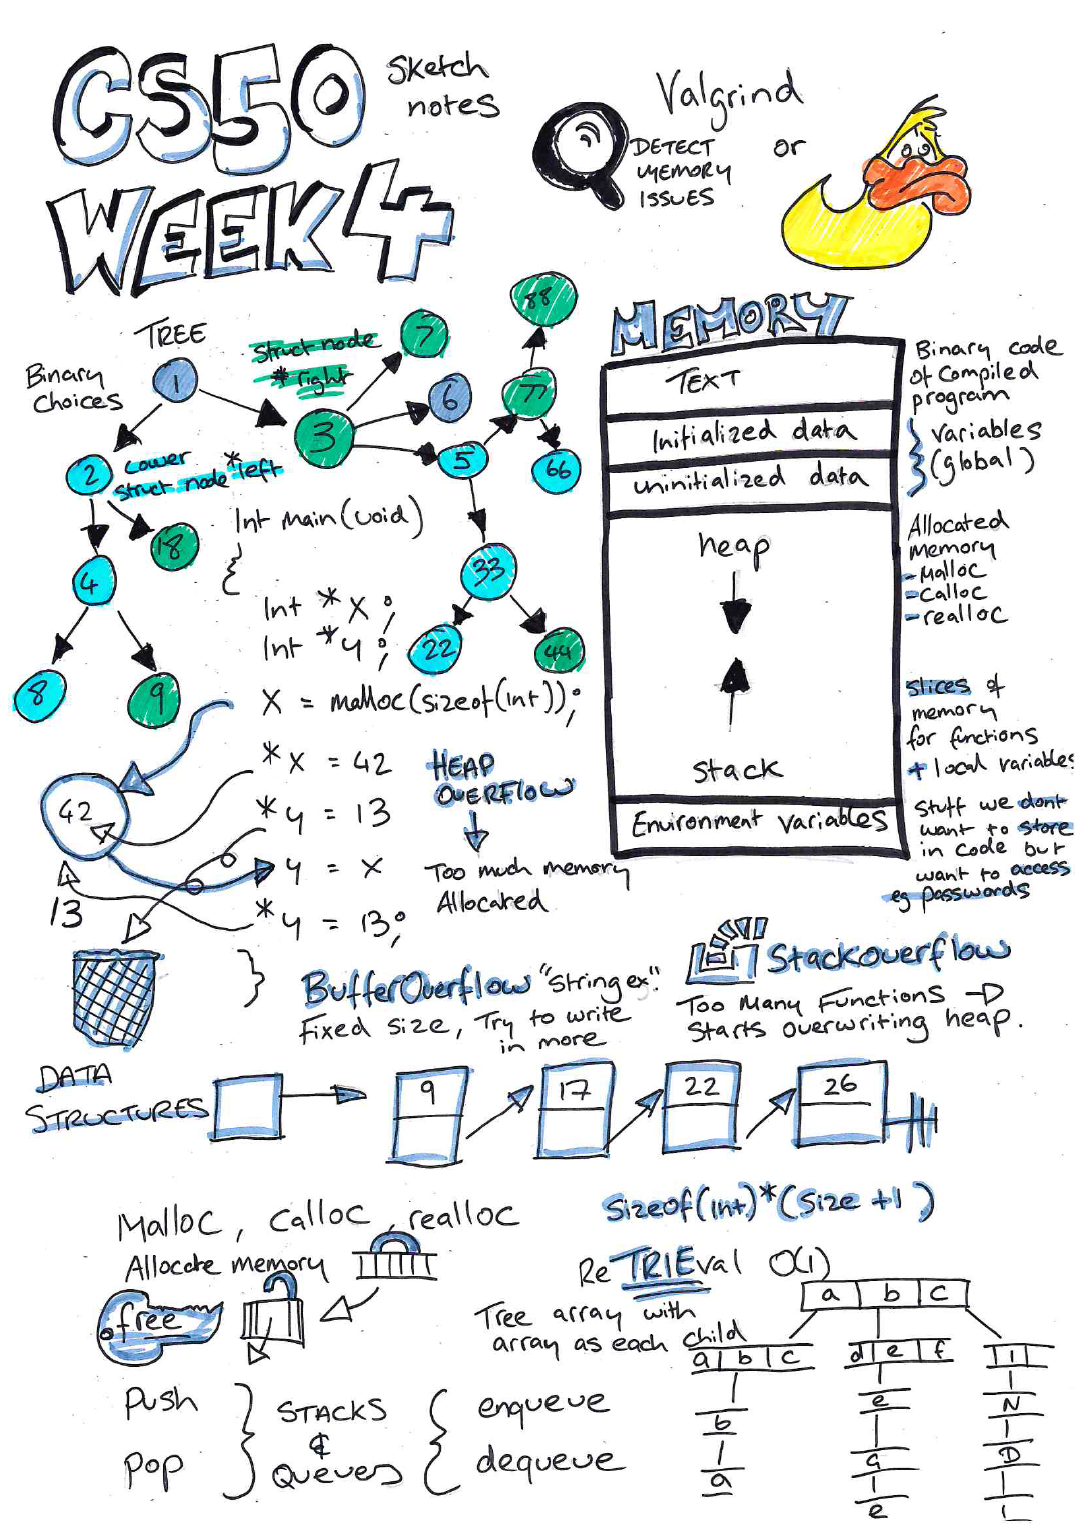 CS50
WEEK 4
Sketch
notes
Valgrind
or
DETECT
MEMORY
ISSUES
TREE
Binary
choices
struct node
* right
Lower
struct node * left
1
2
3
4
5
6
7
8
9
18
22
33
44
66
77
88
Int main(void)
{
Int *x;
Int *y;
X = malloc(sizeof(Int));
*x = 42
*y = 13
y = x
*y = 13;
}
42
13
HEAP
OVERFLOW
Too much memory
Allocated
MEMORY
TEXT
Initialized data
uninitialized data
heap
stack
Environment variables
Binary code
of compiled
program
} variables
(global)
Allocated
memory
- Malloc
- calloc
- realloc
slices of
memory
for functions
+ local variables
Stuff we dont
want to store
in code but
want to access
eg passwords
BufferOverflow "string ex."
Fixed size, Try to write
in more
Stackoverflow
Too Many Functions →
Starts overwriting heap.
DATA
STRUCTURES
9
17
22
26
Sizeof(int)*(size +1)
Malloc, calloc, realloc
Allocate memory
free
Push
Pop
} STACKS
&
QUEUES {
enqueue
dequeue
ReTRIEval O(1)
Tree array with
array as each child
a b c
a b c
d e f
I
b
a
e
G
e
N
D